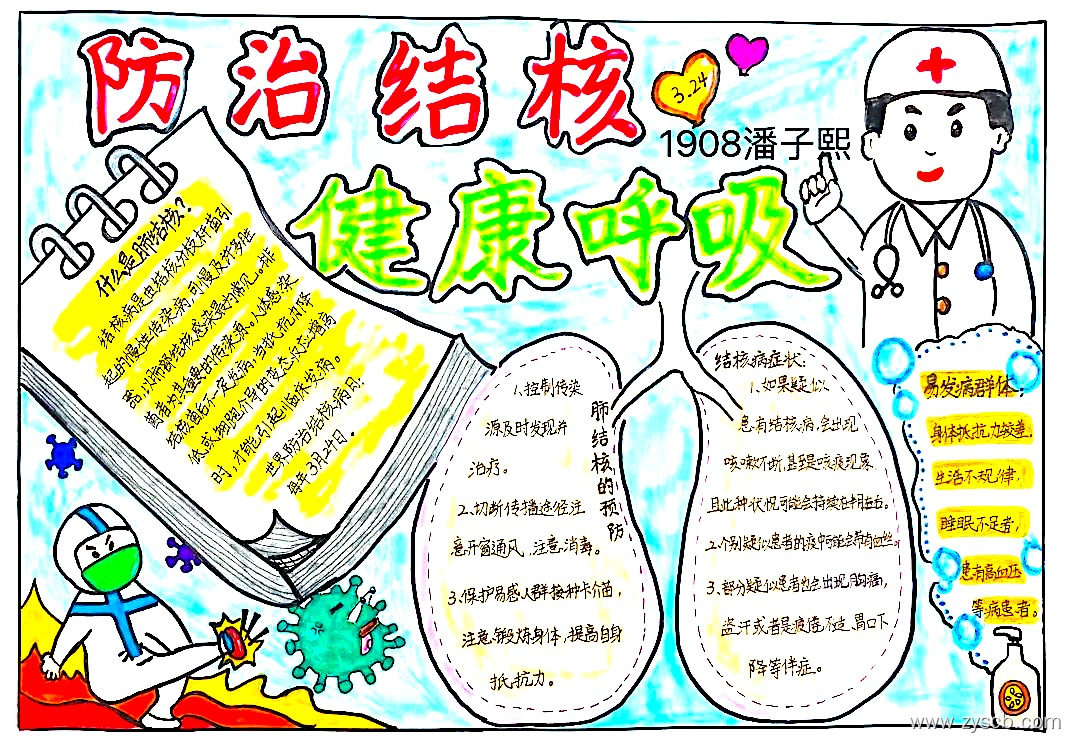 防治结核
3.24
1908潘子熙
健康呼吸
什么是肺结核？
结核病是由结核分枝杆菌引
起的慢性传染病，可慢及许多脏
器，以肺部结核感染最为常见。排
菌者为其重要的传染源。人体感染
结核菌后不一定发病，当抵抗力降
低或细胞介导的变态反应增高
时，才能引起临床发病。
世界防治结核病日：
每年3月24日。
肺结核的预防
1.控制传染
源及时发现并
治疗。
2.切断传播途径注
意开窗通风，注意消毒。
3.保护易感人群接种卡介苗，
注意锻炼身体，提高自身
抵抗力。
结核病症状：
1.如果疑似
患有结核病，会出现
咳嗽不断，甚至是咳痰现象
且此种状况可能会持续在半月左右。
2.个别疑似患者的痰中可能会带有血丝。
3.部分疑似患者也会出现胸痛，
盗汗或者是疲倦不适、胃口下
降等伴症。
易发病群体：
身体抵抗力较差，
生活不规律，
睡眠不足者，
患有高血压
等病患者。
www.zyscb.com